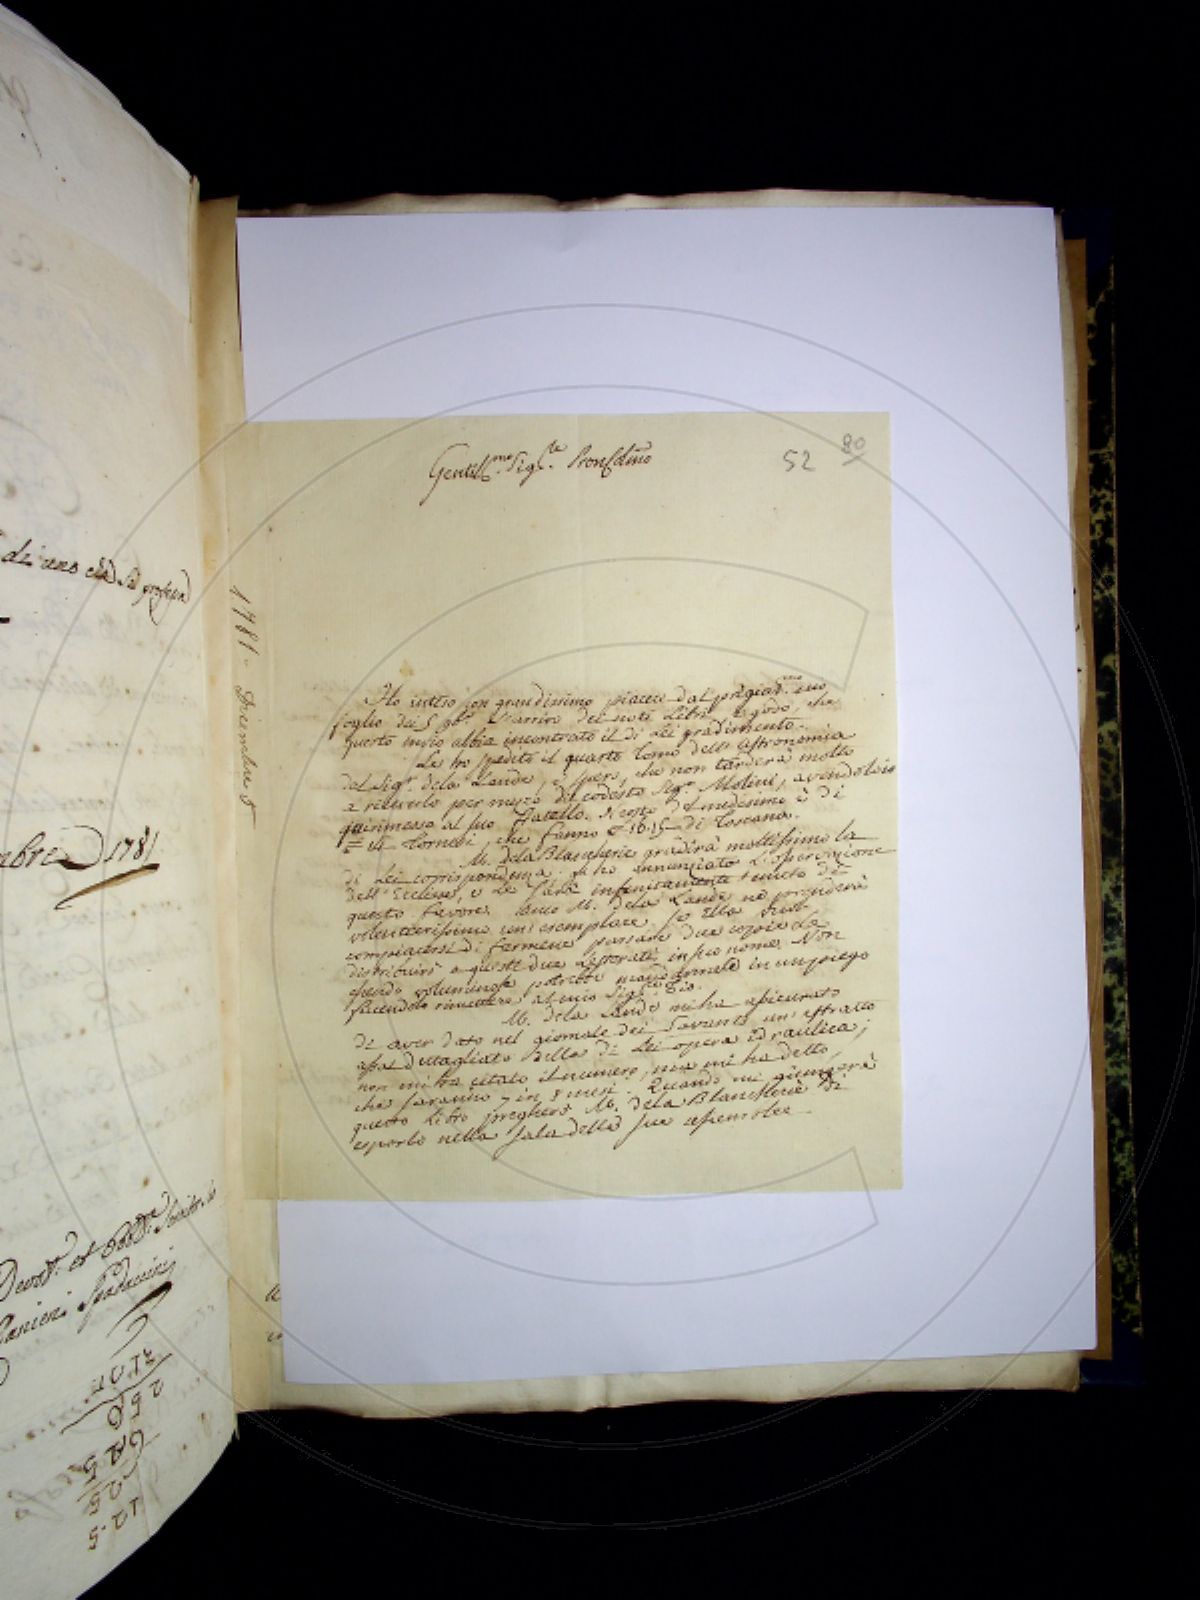 di uno che si professa
1781
Devot.mo et Obb.mo Servitore
Ranieri Spadaccini
52 80
Gentill.mo Sig.re Pron Col.mo
1781. Dicembre 5
Ho inteso con grandissimo piacere dal pregiat.mo suo
foglio dei 5 9bre l'arrivo dei noti Libri, e godo, che
questo invio abbia incontrato il di Lei gradimento.
Le ho spedito il quarto tomo dell'Astronomia
del Sig.r de la Lande, e spero, che non tarderà molto
a riceverlo per mezzo di codesto Sig.r Molini, avendolo io
qui rimesso al suo Fratello. Il costo del medesimo è di
14 Tornesi, che fanno 16.15 di Toscana.
M. de la Blancherie gradirà moltissimo la
di Lei corrispondenza. Gli ho annunziato l'operazione
dell'Eclisse, e Le sarà infinitamente tenuto di
questo favore. Anco M. de la Lande ne prenderà
volentierissimo un'esemplare. Se Ella vuol
compiacersi di farmene passare due copie Le
distribuirò a questi due Letterati in suo nome. Non
essendo voluminose potrebbe mandarmele in un piego
facendolo rimettere al mio Sig.r Zio.
M. de la Lande mi ha assicurato
di aver dato nel giornale dei Savants un'estratto
assai dettagliato della di Lei opera idraulica;
non mi ha citato il numero, ma mi ha detto,
che saranno 7 in 8 mesi. Quando mi giungerà
questo Libro pregherò M. de la Blancherie di
esporlo nella sala della sua assemblea